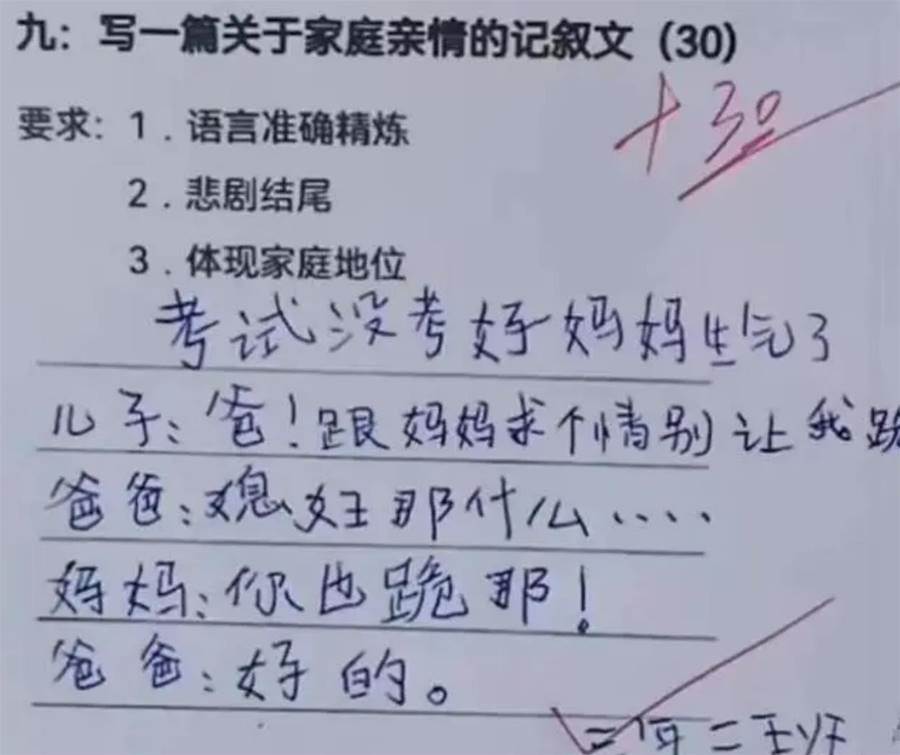 九：写一篇关于家庭亲情的记叙文（30）
+30
要求：1．语言准确精炼
2．悲剧结尾
3．体现家庭地位
考试没考好妈妈生气了
儿子：爸！跟妈妈求个情别让我跪
爸爸：媳妇那什么····
妈妈：你也跪那！
爸爸：好的。
二年二班